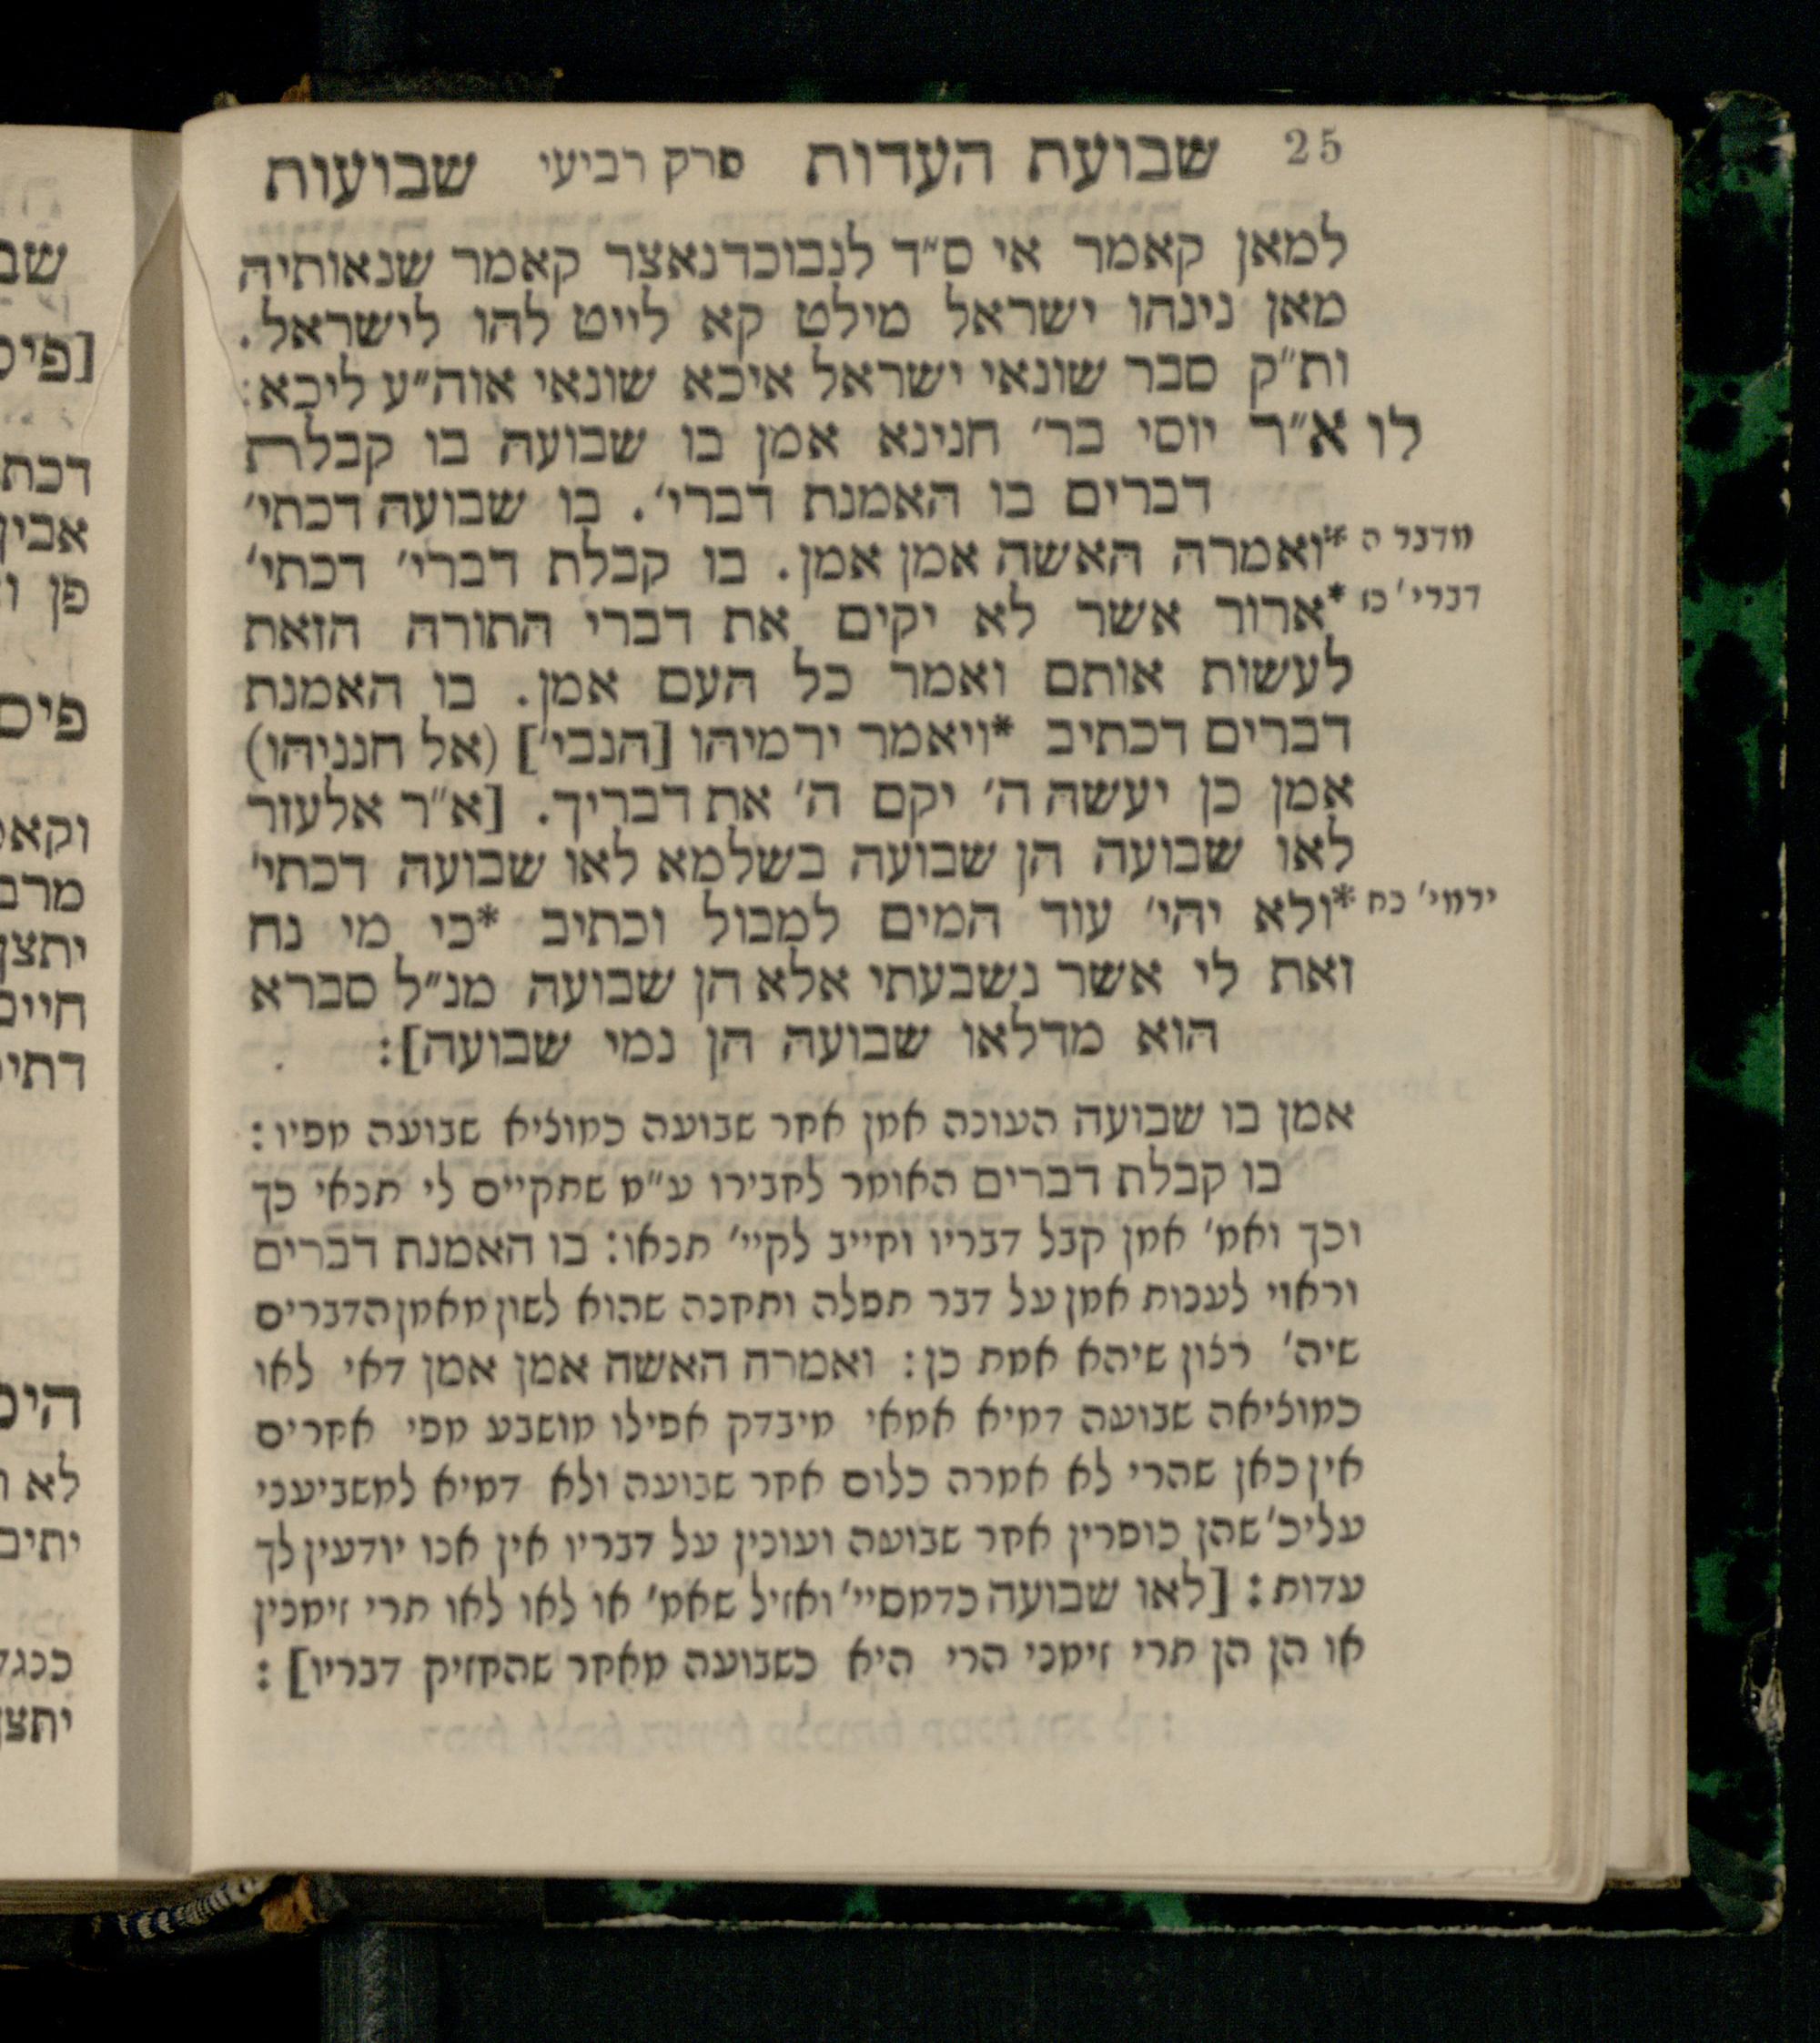 25 שבועת העדות פרק רביעי שבועות
למאן קאמר אי ס״ד לנבוכדנאצר קאמר שנאותיה
מאן נינהו ישראל מילט קא לייט להו לישראל.
ות״ק סבר שונאי ישראל איכא שונאי אוה״ע ליכא:
לו א״ר יוסי בר׳ חנינא אמן בו שבועה בו קבלת
דברים בו האמנת דברי׳. בו שבועה דכתי׳
מדבר ה *ואמרה האשה אמן אמן. בו קבלת דברי׳ דכתי׳
דברי׳ כז *ארור אשר לא יקים את דברי התורה הזאת
לעשות אותם ואמר כל העם אמן. בו האמנת
דברים דכתיב *ויאמר ירמיהו [הנבי׳] (אל חנניהו)
אמן כן יעשה ה׳ יקם ה׳ את דבריך. [א״ר אלעזר
לאו שבועה הן שבועה בשלמא לאו שבועה דכתי׳
ירמי׳ כח *ולא יהי׳ עוד המים למבול וכתיב *כי מי נח
זאת לי אשר נשבעתי אלא הן שבועה מנ״ל סברא
הוא מדלאו שבועה הן נמי שבועה]:
אמן בו שבועה העונה אמן אחר שבועה כמוציא שבועה מפיו:
בו קבלת דברים האומר לחבירו ע״מ שתקיים לי תנאי כך
וכך ואמ׳ אמן קבל דבריו וחייב לקיי׳ תנאו: בו האמנת דברים
וראוי לענות אמן על דבר תפלה ותחנה שהוא לשון מאמן הדברים
שיה׳ רצון שיהא אמת כן: ואמרה האשה אמן אמן דאי לאו
כמוציאה שבועה דמיא אמאי מיבדק אפילו מושבע מפי אחרים
אין כאן שהרי לא אמרה כלום אחר שבועה ולא דמיא למשביעני
עליכ׳ שהן כופרין אחר שבועה ועונין על דבריו אין אנו יודעין לך
עדות: [לאו שבועה כדמסיי׳ ואזיל שאמ׳ או לאו לאו תרי זימנין
או הן הן תרי זימני הרי היא כשבועה מאחר שהחזיק דבריו]:
שב
[פיס
דכת
אבין
פן ו
פיס
וקאמ
מרב
יתצן
חיים
דתי
לא